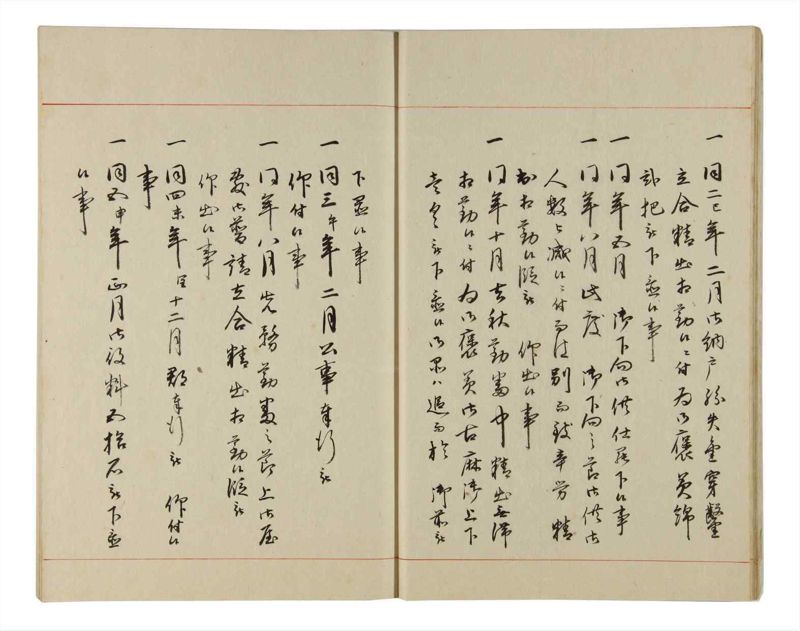 一同二巳年二月御納戸紛失金穿鑿
立合精出相勤候ニ付為御褒美錦
被下置候事
一同年五月 御下向御供仕罷下候事
一同年八月此度 御下向之節御供御
人数も減候ニ付而は別而致辛労精
出相勤候段被 仰出候事
一同年十月去秋勤番中精出無滞
相勤候ニ付為御褒美御古麻御上下
壱具被下置候 追而於 御前被
下置候事
一同三午年二月公事奉行被
仰付候事
一同年八月先務勤番之節上御屋
敷御普請立合精出相勤候段被
仰出候事
一同四未年十二月郡奉行被 仰付候
事
一同五申年正月御役料五拾石被下置
候事